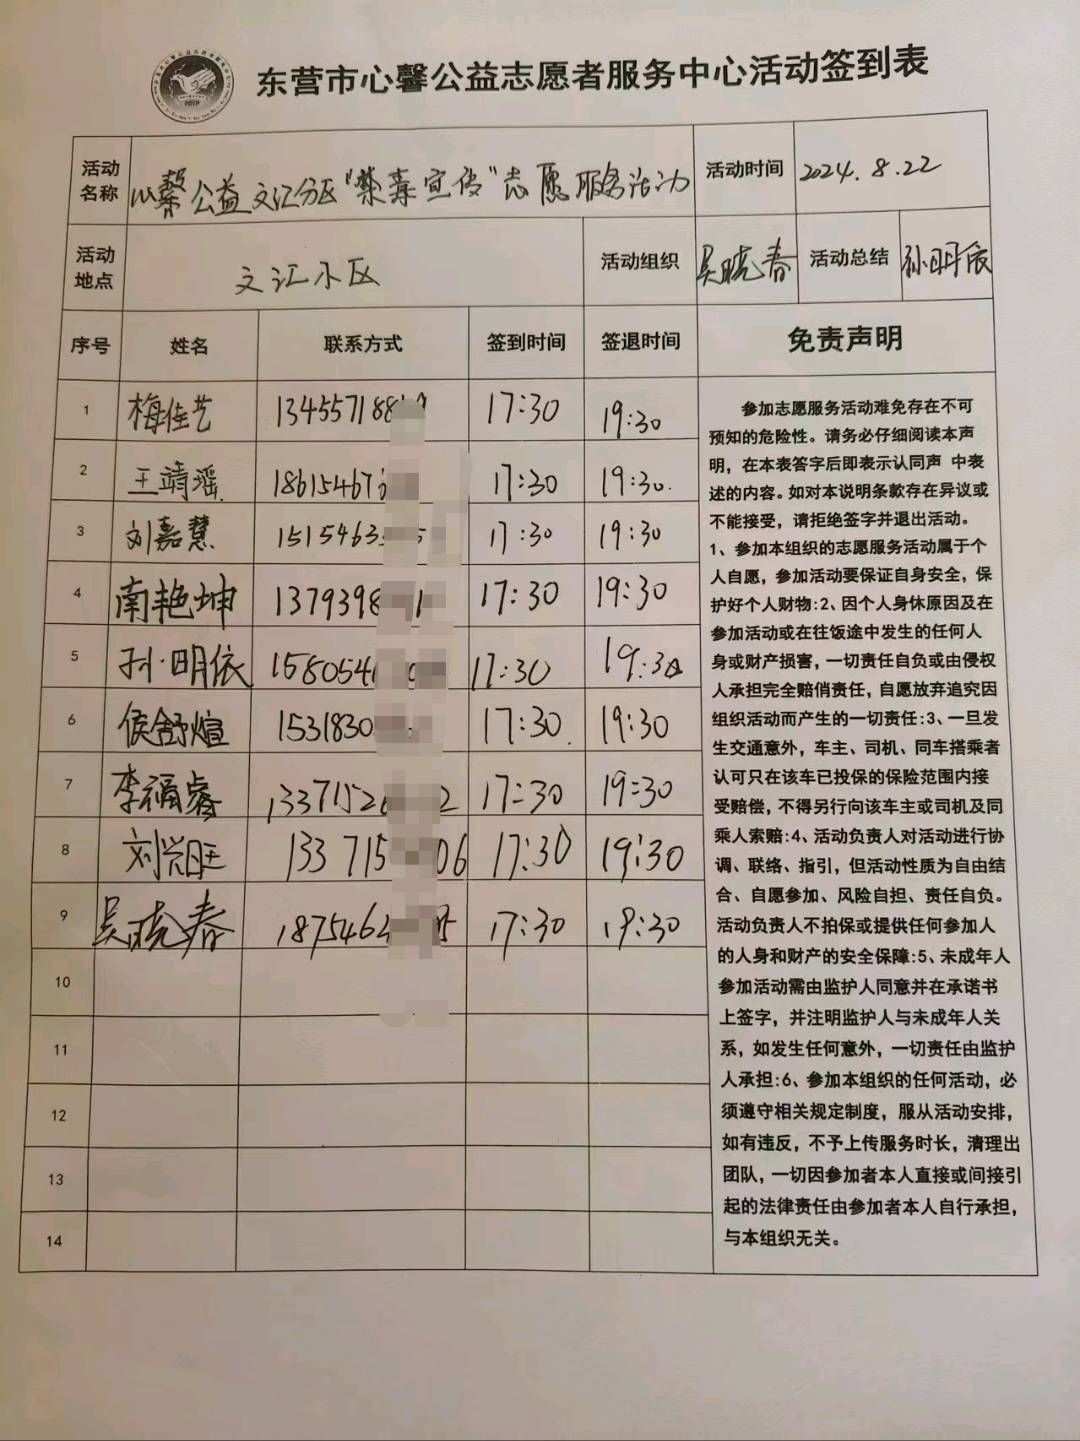 东营市心馨公益志愿者服务中心活动签到表
活动名称 心馨公益文汇分区"禁毒宣传"志愿服务活动 活动时间 2024.8.22
活动地点 文汇小区 活动组织 吴晓春 活动总结 孙明依
序号 姓名 联系方式 签到时间 签退时间 免责声明
1 梅佳艺 134557188 17:30 19:30
2 王靖瑶 18615467 17:30 19:30
3 刘嘉慧 15154463 17:30 19:30
4 南艳坤 1379398 1 17:30 19:30
5 孙明依 1580546 17:30 19:30
6 侯舒煊 1531830 17:30 19:30
7 李福睿 1337152 2 17:30 19:30
8 刘兴旺 133715 06 17:30 19:30
9 吴晓春 1875462 5 17:30 19:30
10
11
12
13
14
参加志愿服务活动难免存在不可
预知的危险性。请务必仔细阅读本声
明，在本表答字后即表示认同声 中表
述的内容。如对本说明条款存在异议或
不能接受，请拒绝签字并退出活动。
1、参加本组织的志愿服务活动属于个
人自愿，参加活动要保证自身安全，保
护好个人财物:2、因个人身休原因及在
参加活动或在往饭途中发生的任何人
身或财产损害，一切责任自负或由侵权
人承担完全赔俏责任，自愿放弃追究因
组织活动而产生的一切责任:3、一旦发
生交通意外，车主、司机、同车搭乘者
认可只在该车已投保的保险范围内接
受赔偿，不得另行向该车主或司机及同
乘人索赔:4、活动负责人对活动进行协
调、联络、指引，但活动性质为自由结
合、自愿参加、风险自担、责任自负。
活动负责人不拍保或提供任何参加人
的人身和财产的安全保障:5、未成年人
参加活动需由监护人同意并在承诺书
上签字，并注明监护人与未成年人关
系，如发生任何意外，一切责任由监护
人承担:6、参加本组织的任何活动，必
须遵守相关规定制度，服从活动安排，
如有违反，不予上传服务时长，清理出
团队，一切因参加者本人直接或间接引
起的法律责任由参加者本人自行承担，
与本组织无关。